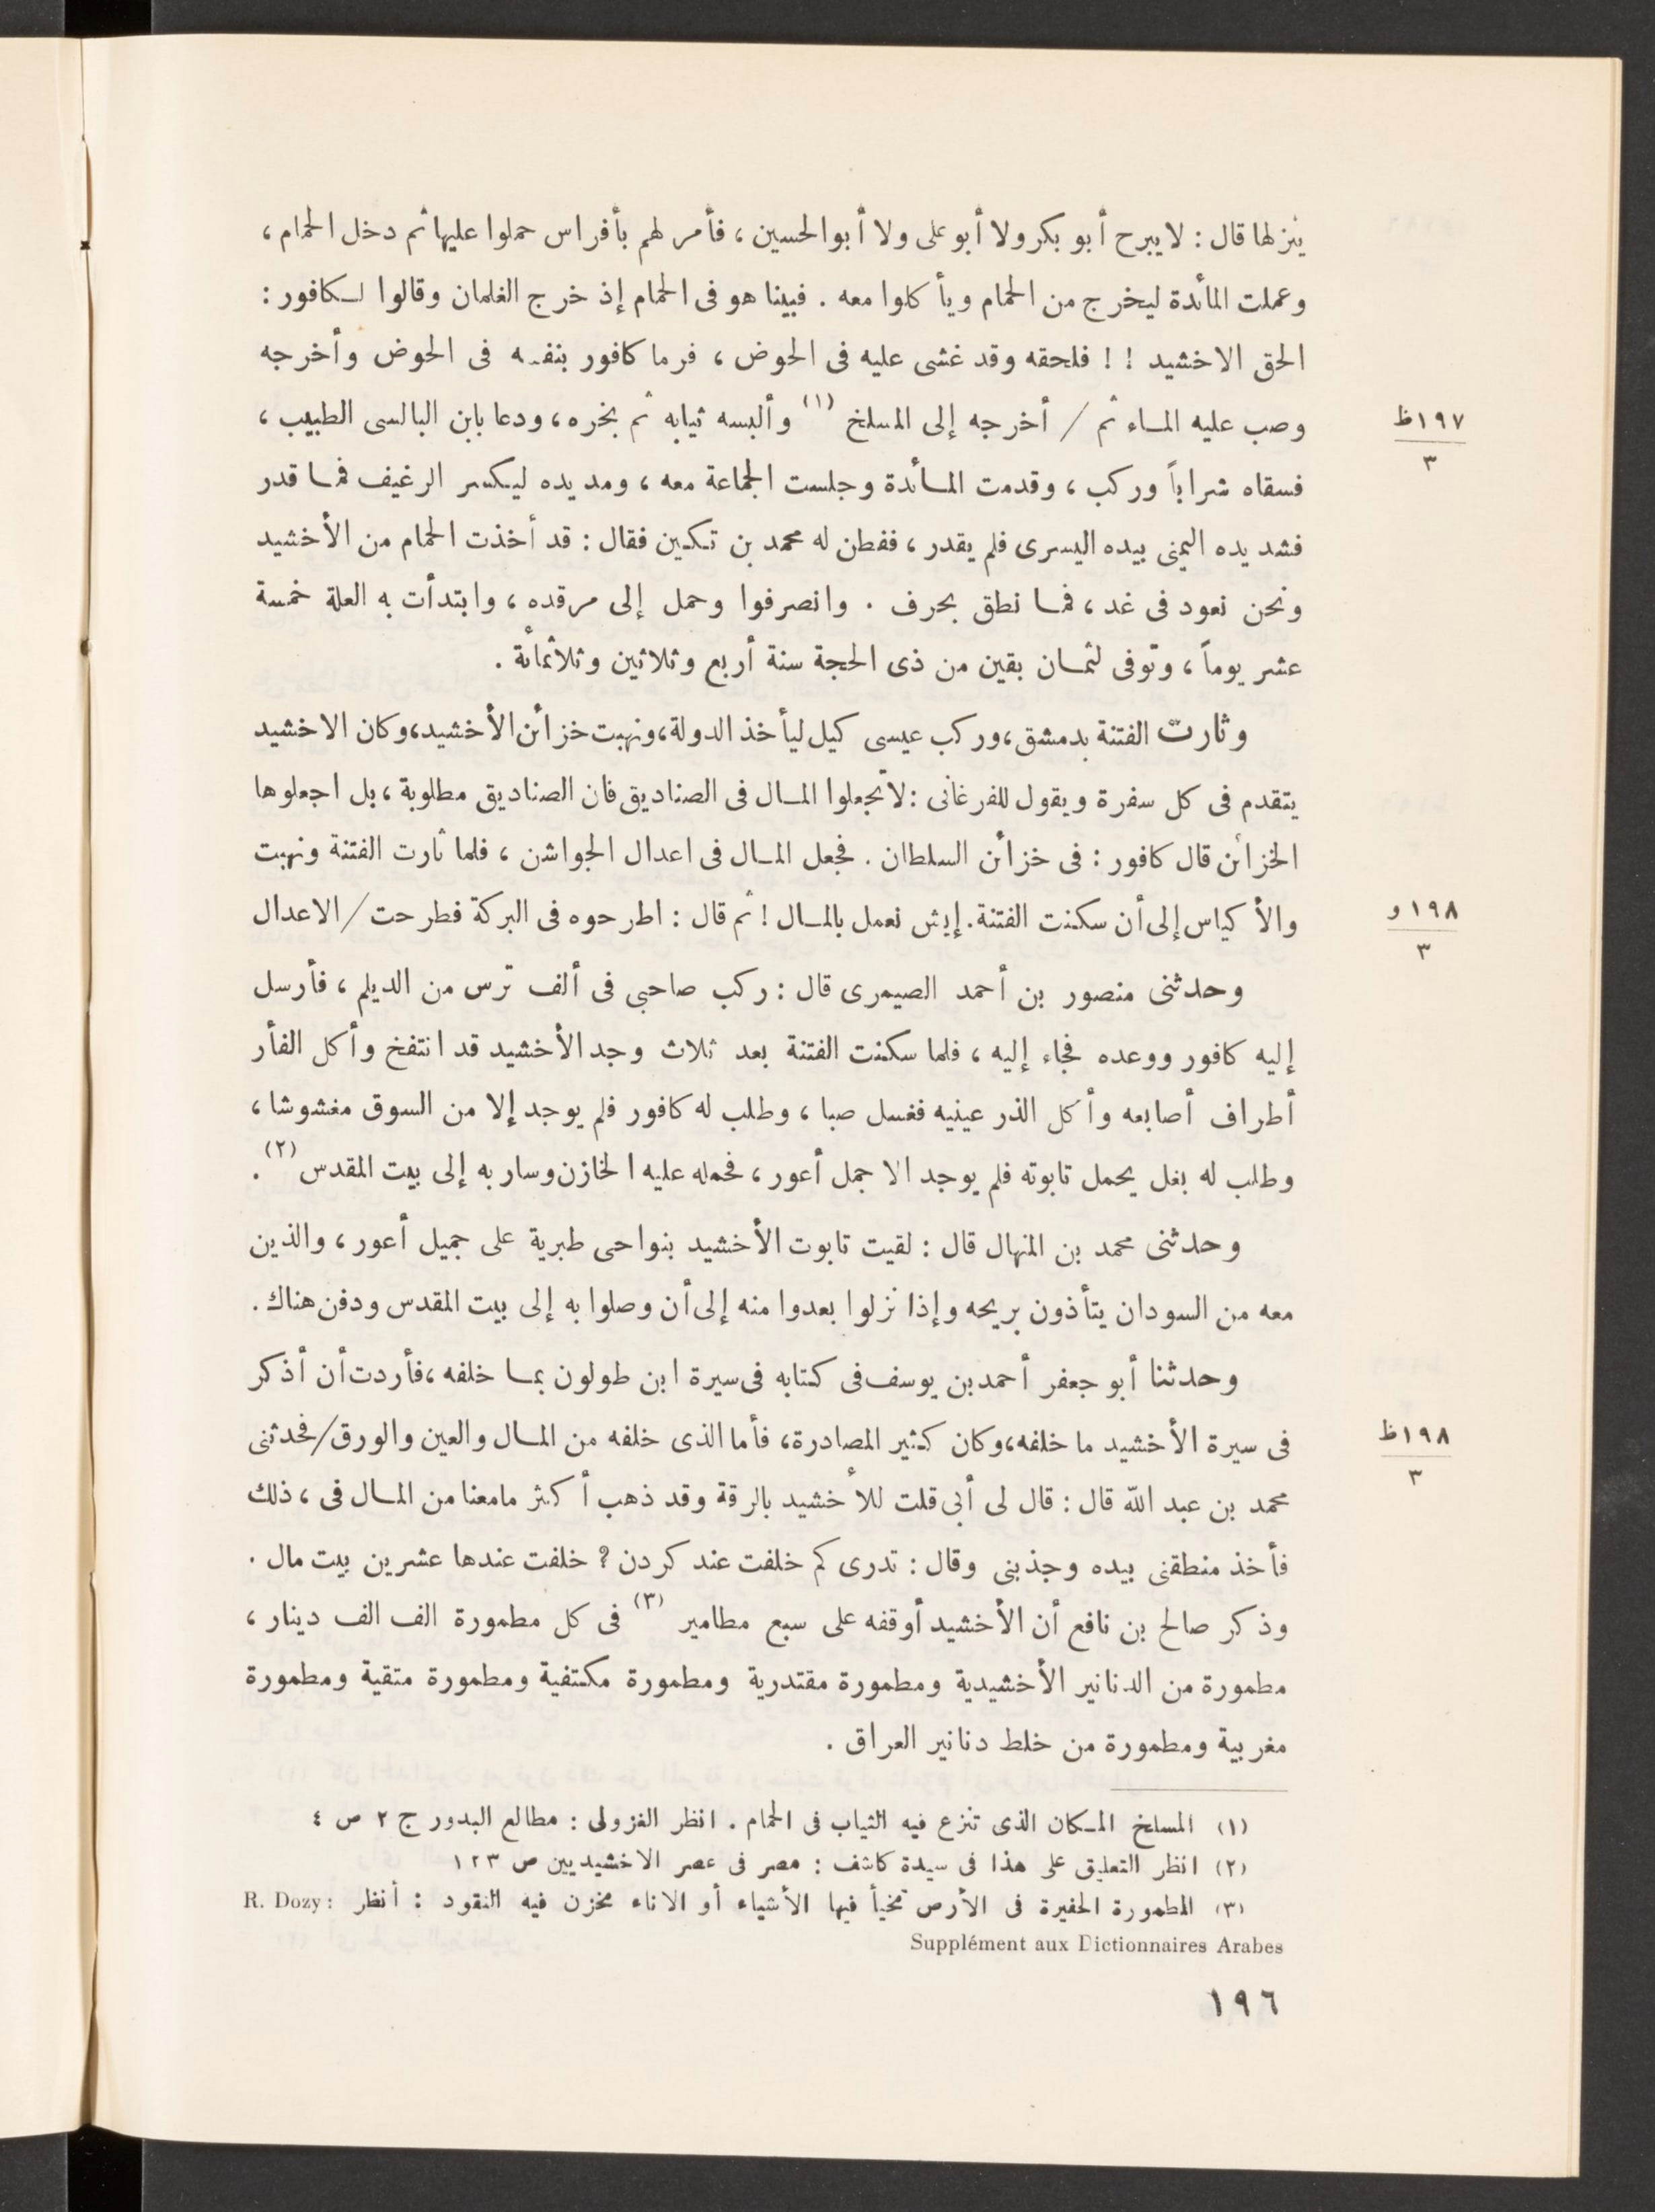 ينزلها قال : لا يبرح أبو بكر ولا أبو على ولا أبو الحسين ، فأمر لهم بأفراس حملوا عليها ثم دخل الحمام ،
وعملت المائدة ليخرج من الحمام ويأكلوا معه . فبينا هو فى الحمام إذ خرج الغلمان وقالوا لكافور :
الحق الاخشيد ! ! فلحقه وقد غشى عليه فى الحوض ، فرما كافور بنفسه فى الحوض وأخرجه
وصب عليه الماء ثم / أخرجه إلى المسلخ (١) وألبسه ثيابه ثم بخره ، ودعا بابن البالسى الطبيب ،
١٩٧ظ
٣
فسقاه شراباً وركب ، وقدمت المائدة وجلست الجماعة معه ، ومد يده ليكسر الرغيف فما قدر
فشد يده اليمنى بيده اليسرى فلم يقدر ، ففطن له محمد بن تكين فقال : قد أخذت الحمام من الأخشيد
ونحن نعود فى غد ، فما نطق بحرف . وانصرفوا وحمل إلى مرقده ، وابتدأت به العلة خمسة
عشر يوماً ، وتوفى لثمان بقين من ذى الحجة سنة أربع وثلاثين وثلاثمائة .
وثارت الفتنة بدمشق ، وركب عيسى كيل ليأخذ الدولة ، ونهبت خزائن الأخشيد ، وكان الاخشيد
يتقدم فى كل سفرة ويقول للفرغانى : لا تجعلوا المال فى الصناديق فان الصناديق مطلوبة ، بل اجعلوها
الخزائن قال كافور : فى خزائن السلطان . فجعل المال فى اعدال الجواشن ، فلما ثارت الفتنة ونهبت
والأكياس إلى أن سكنت الفتنة . إيش نعمل بالمال ! ثم قال : اطرحوه فى البركة فطرحت / الاعدال
١٩٨و
٣
وحدثنى منصور بن أحمد الصيمرى قال : ركب صاحبى فى ألف ترس من الديلم ، فأرسل
إليه كافور ووعده فجاء إليه ، فلما سكنت الفتنة بعد ثلاث وجد الأخشيد قد انتفخ وأكل الفأر
أطراف أصابعه وأكل الذر عينيه فغسل صبا ، وطلب له كافور فلم يوجد إلا من السوق مغشوشا ،
وطلب له بغل يحمل تابوته فلم يوجد الا جمل أعور ، فحمله عليه الخازن وسار به إلى بيت المقدس (٢) .
وحدثنى محمد بن المنهال قال : لقيت تابوت الأخشيد بنواحى طبرية على جميل أعور ، والذين
معه من السودان يتأذون بريحه وإذا نزلوا بعدوا منه إلى أن وصلوا به إلى بيت المقدس ودفن هناك .
وحدثنا أبو جعفر أحمد بن يوسف فى كتابه فى سيرة ابن طولون بما خلفه ، فأردت أن أذكر
فى سيرة الأخشيد ما خلفه ، وكان كثير المصادرة ، فأما الذى خلفه من المال والعين والورق / فحدثنى
١٩٨ظ
٣
محمد بن عبد الله قال : قال لى أبى قلت للأخشيد بالرقة وقد ذهب أكثر مامعنا من المال فى ، ذلك
فأخذ منطقتى بيده وجذبنى وقال : تدرى كم خلفت عند كردن ؟ خلفت عندها عشرين بيت مال .
وذكر صالح بن نافع أن الأخشيد أوقفه على سبع مطامير (٣) فى كل مطمورة الف الف دينار ،
مطمورة من الدنانير الأخشيدية ومطمورة مقتدرية ومطمورة مكتفية ومطمورة متقية ومطمورة
مغربية ومطمورة من خلط دنانير العراق .
(١) المسلخ المكان الذى تنزع فيه الثياب فى الحمام . انظر الغزولى : مطالع البدور ج ٢ ص ٤
(٢) انظر التعليق على هذا فى سيدة كاشف : مصر فى عصر الاخشيديين ص ١٢٣
(٣) المطمورة الحفيرة فى الأرص تخبأ فيها الأشياء أو الاناء تخزن فيه النقود : أنظر R. Dozy :
Supplément aux Dictionnaires Arabes
١٩٦